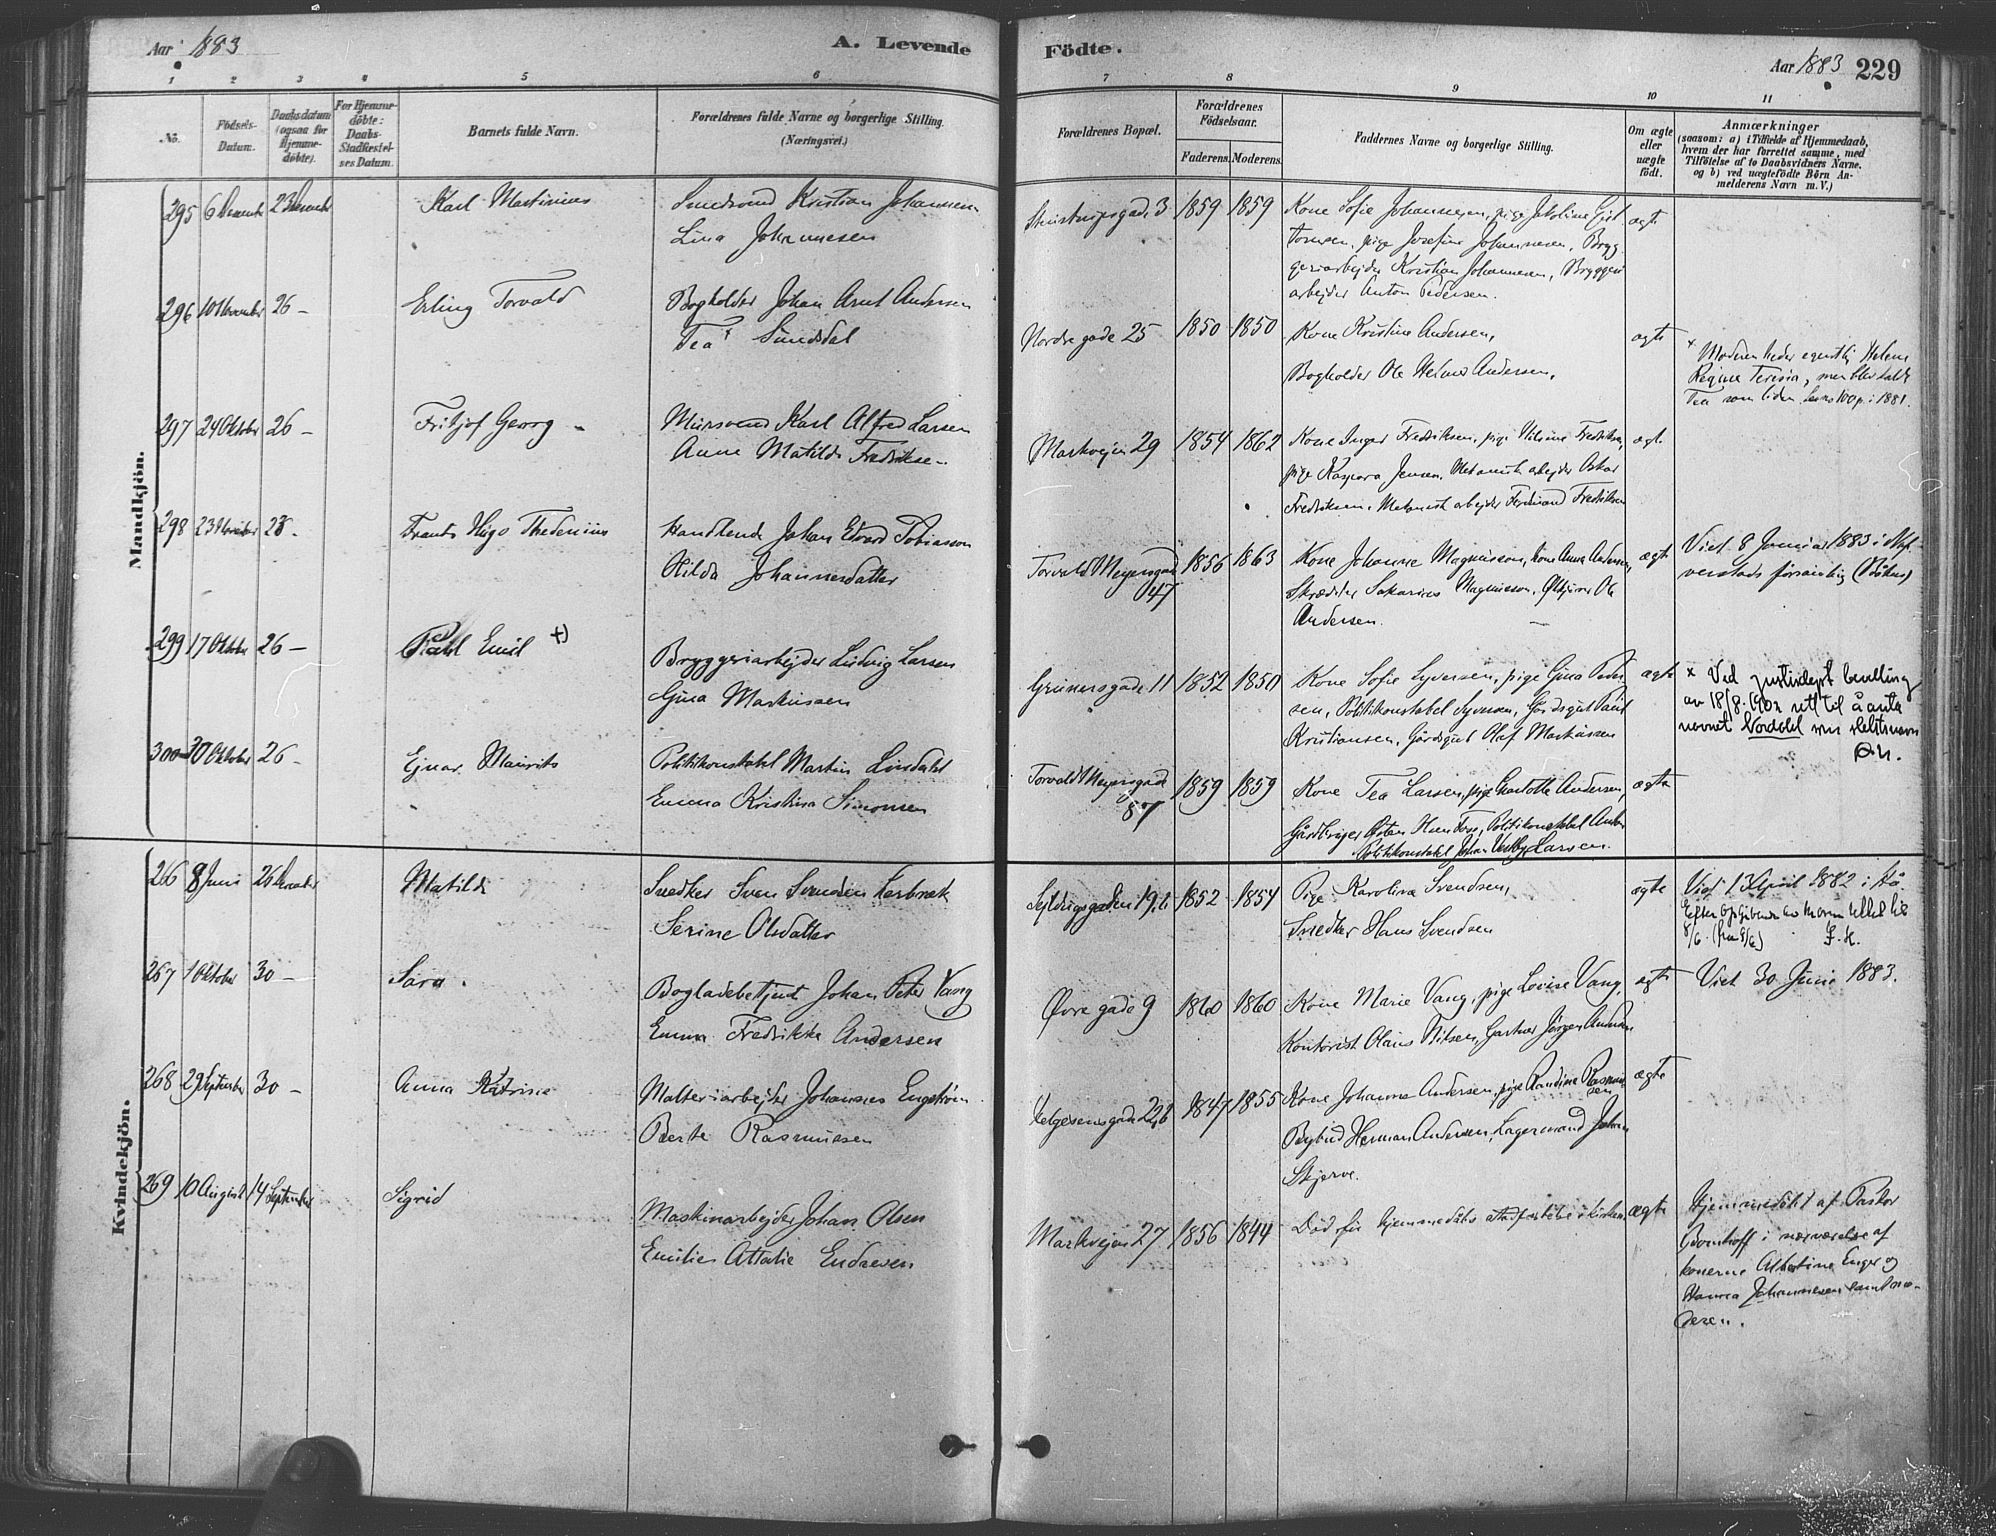 Aar 1883
A. Levende
Födte.
Aar 1883
229
1 2 3 4 5 6 7 8 9 10 11
No.
Födsels-Datum.
Daabsdatum (ogsaa för Hjemme-döbte).
For Hjemme-döbte: Daabs-Stadfæstelses Datum.
Barnets fulde Navn.
Forældrenes fulde Navne og borgerlige Stilling. (Næringsvei.)
Forældrenes Bopæl.
Forældrenes Födselsaar.
Faderens. Moderens.
Faddernes Navne og borgerlige Stilling.
Om ægte eller uægte födt.
Anmærkninger
(saasom: a) i Tilfælde af Hjemmedaab,
hvem der har forrettet samme, med
Tilföielse af to Daabsvidners Navne.
og b) ved uægtefödte Börn An-
melderens Navn m. V.)
Mandkjön.
295 6 23
Karl Martinius
Kristian Johannesen
Lina Johannesen
3 1859 1859
Kone Sofie Johannesen, pige
pige Josefine Johannesen, Brygg
geriarbejder Kristian Johannesen, Bryggeri
arbejder Anton Pedersen.
ægte
296 10 November 26 –
Erling Torvald
Bogholder Johan Arnt Andersen
Tea x Sundsdal
Nordregade 25 1850 1850
Kone Kristine Andersen,
Bogholder Ole Helmer Andersen,
ægte
x Moderen heder egentlig Helene
Regine Teresia, men blev kaldt
Tea som liden. 1881.
297 24 Oktober 26 –
Fritjof Georg
Mursvend Karl Alfred Larsen
Anne Matilde Fredriksen
Markvejen 29 1854 1862
Kone Inger Fredriksen, pige Fredriksen,
pige Kaspara Jensen, Mekanisk arbejder Oskar
Fredriksen, Mekanisk arbejder Ferdinand Fredriksen
ægt.
298 23
Frants Hugo Thedenius
Handlende Johan Edvard Tobiasson
Hilda Johannesdatter
Torvald Meyersgade 47 1856 1863
Kone Johanne Magnusson, kone Anna Andersen,
Skrædder Sakarias Magnusson, Ole
Andersen.
ægte
Viet 8 Januar 1883 i
299 17 Oktober 26 –
Emil x)
Bryggeriarbejder Ludvig Larsen
Gina Markussen
Grünersgade 11 1852 1850
Kone Sofie Syversen, pige Gina Peder
sen, Politikonstabel Syversen, Gårdsgut Paul
Kristiansen, Gårdsgut Olaf Markussen
ægte
x Ved justisdept bevilling
av 18/8. 1902 rett til å anta
navnet Nordahl som slektsnavn
300 30 Oktober 26 –
Ejnar Maurits
Politikonstabel Martin Lindahl
Emma Kristina Simonsen
Torvald Meyersgade 87 1859 1859
Kone Tea Larsen, pige Charlotte Andersen,
Gårdbruger Politikonstabel
Politikonstabel Johan Larsen.
ægte
Kvindekjön.
266 8 Juni 26
Matilde
Snedker Sven Svendsen
Serine Olsdatter
1852 1854
Pige Karoline Svendsen,
Snedker Hans Svendsen
ægte
Viet April 1882 i
267 1 Oktober 30 –
Sara.
Bogladebetjent Johan Peter Vang
Emma Fredrikke Andersen
Øvregade 9 1860 1860
Kone Marie Vang, pige Lovise Vang,
Kontorist Olaus Nilsen, Gartner Jørgen Andersen
ægte
Viet 30 Juni 1883.
268 29 September 30 –
Anna Katrine
Malteriarbejder Johannes Engstrøm
Berte Rasmussen
Helgesensgade 1847 1855
Kone Johanne Andersen, pige Randine Rasmus
sen
Bybud Herman Andersen, Lagermand Johan
Skjerve.
ægte
269 10 August 14 September
Sigrid
Maskinarbejder Johan Olsen
Emilie Attalie Endresen
Markvejen 27 1856 1844
Død før hjemmedåbs stadfæstelse i kirken
ægte
Hjemmedøbt af Pastor
i nærværelse af
konerne Albertine Enger og
Hanna Johannesen samt mo-
deren.